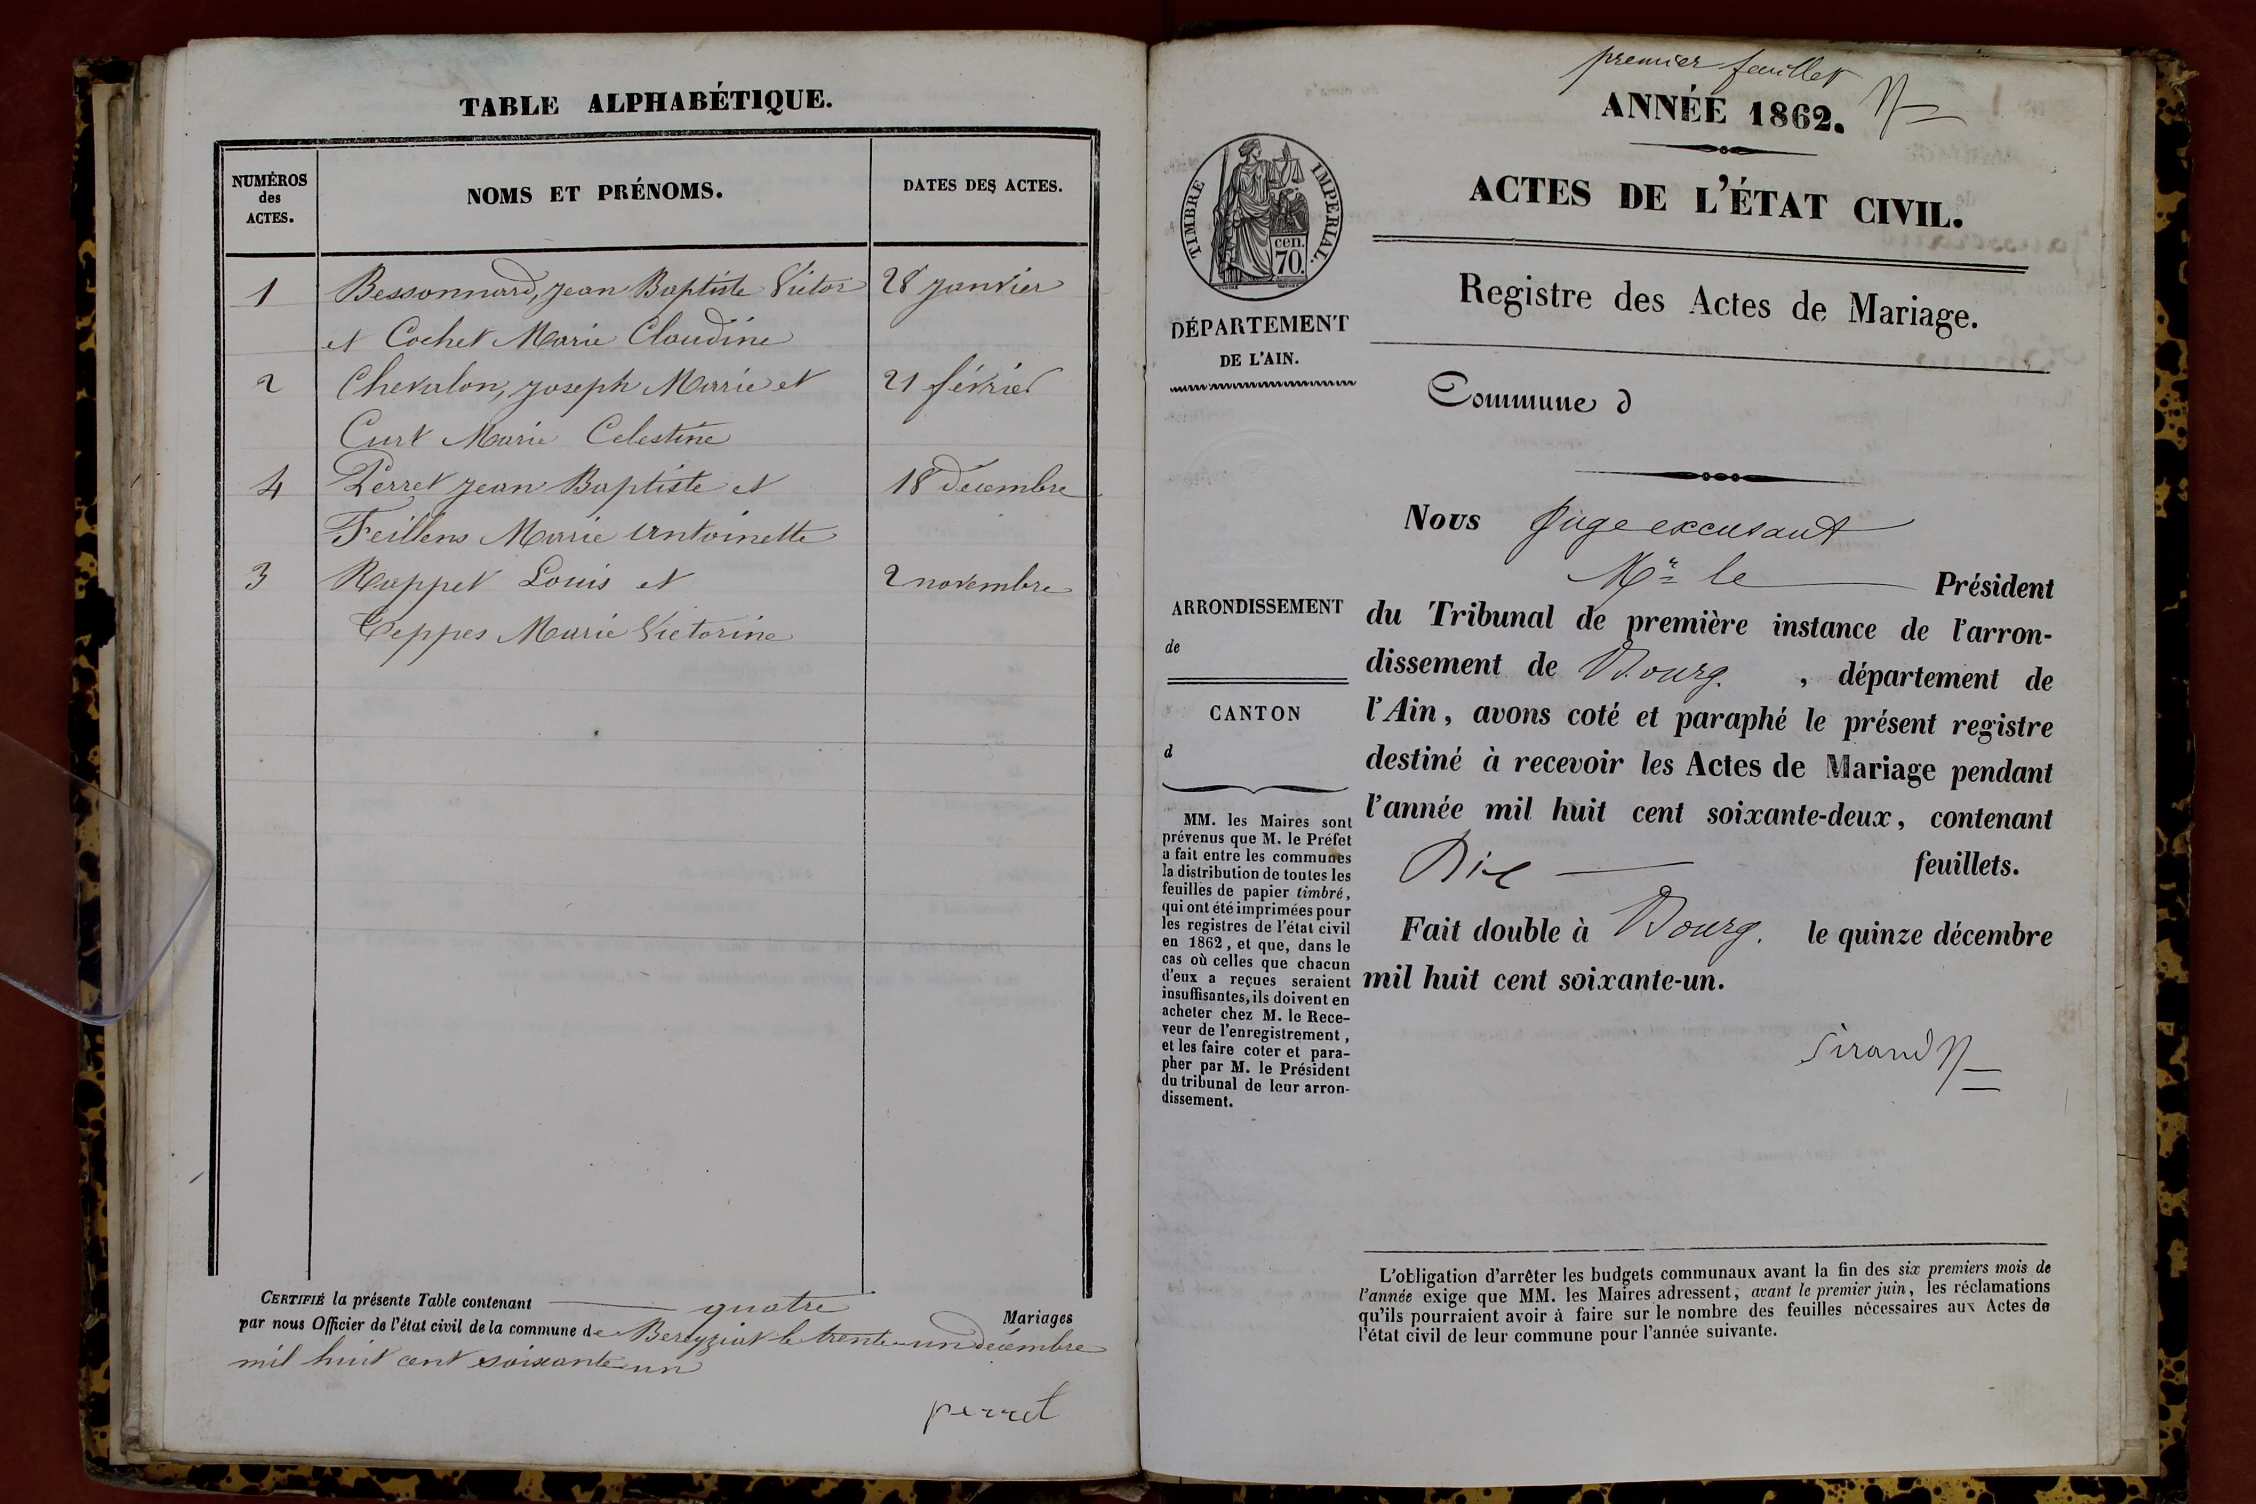 TABLE ALPHABÉTIQUE.
NUMÉROS des ACTES.
NOMS ET PRÉNOMS.
DATES DES ACTES.
1 Bessonnard, Jean Baptiste Victor 28 janvier
et Cochet Marie Claudine
2 Chevalon, Joseph Marie et 21 février
Curt Marie Celestine
4 Perret Jean Baptiste et 18 décembre
Feillens Marie Antoinette
3 Rappet Louis et 2 novembre
Teppes Marie Victorine
CERTIFIÉ la présente Table contenant quatre Mariages
par nous Officier de l'état civil de la commune de Bereyziat le trente-un décembre
mil huit cent soixante un
perret
premier feuillet
ANNÉE 1862.
ACTES DE L'ÉTAT CIVIL.
Registre des Actes de Mariage.
TIMBRE IMPERIAL.
cen.
70.
DÉPARTEMENT
DE L'AIN.
Commune d
Nous Juge excusant
Mr le Président
du Tribunal de première instance de l'arron-
dissement de Bourg. , département de
l'Ain, avons coté et paraphé le présent registre
destiné à recevoir les Actes de Mariage pendant
l'année mil huit cent soixante-deux, contenant
Dix feuillets.
Fait double à Bourg. le quinze décembre
mil huit cent soixante-un.
Sirand
ARRONDISSEMENT
de
CANTON
d
MM. les Maires sont
prévenus que M. le Préfet
a fait entre les communes
la distribution de toutes les
feuilles de papier timbré,
qui ont été imprimées pour
les registres de l'état civil
en 1862, et que, dans le
cas où celles que chacun
d'eux a reçues seraient
insuffisantes, ils doivent en
acheter chez M. le Rece-
veur de l'enregistrement,
et les faire coter et para-
pher par M. le Président
du tribunal de leur arron-
dissement.
L'obligation d'arrêter les budgets communaux avant la fin des six premiers mois de
l'année exige que MM. les Maires adressent, avant le premier juin, les réclamations
qu'ils pourraient avoir à faire sur le nombre des feuilles nécessaires aux Actes de
l'état civil de leur commune pour l'année suivante.